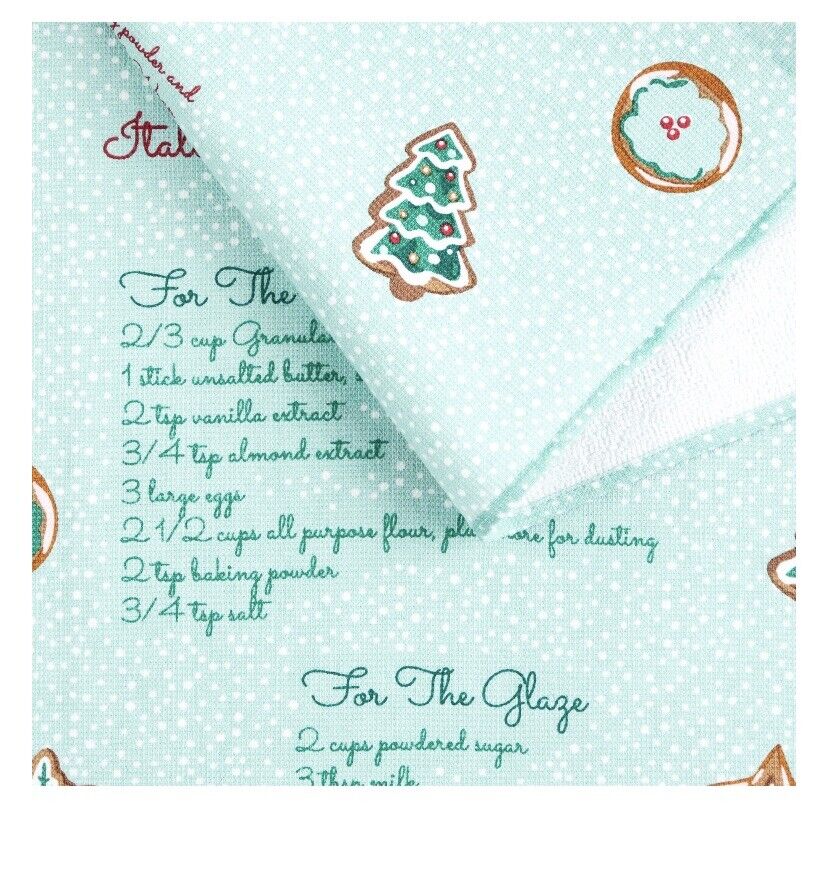 powder and
For The
2/3 cup
1 stick unsalted butter,
2 tsp vanilla extract
3/4 tsp almond extract
3 large eggs
2 1/2 cups all purpose flour, for dusting
2 tsp baking powder
3/4 tsp salt
For The Glaze
2 cups powdered sugar
3 tbsp milk